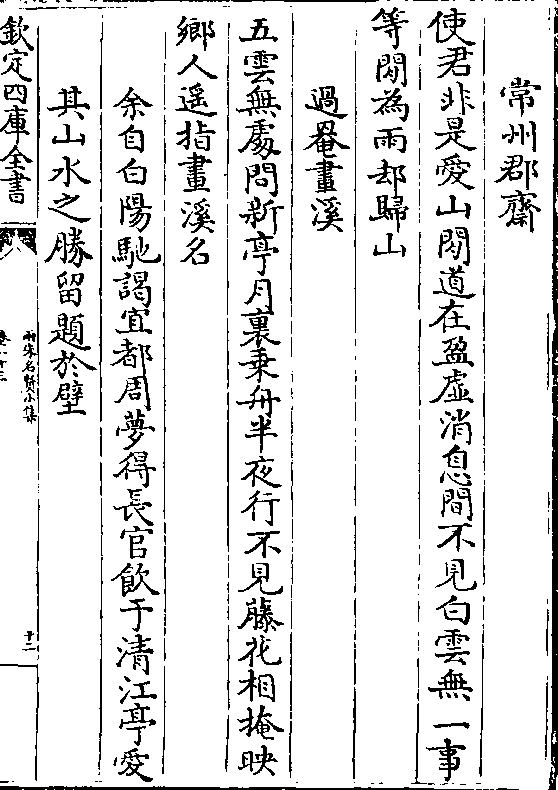 常州郡齋
使君非是愛山閒道在盈虛消息間不見白雲無一事
等閒為雨却歸山
過罨畫溪
五雲無處問新亭月裏乗舟半夜行不見藤花相掩映
鄉人遥指畫溪名
余自白陽馳謁宜都周夢得長官飲于清江亭愛
其山水之勝留題於壁
欽定四庫全書
兩宋名賢小集
十二